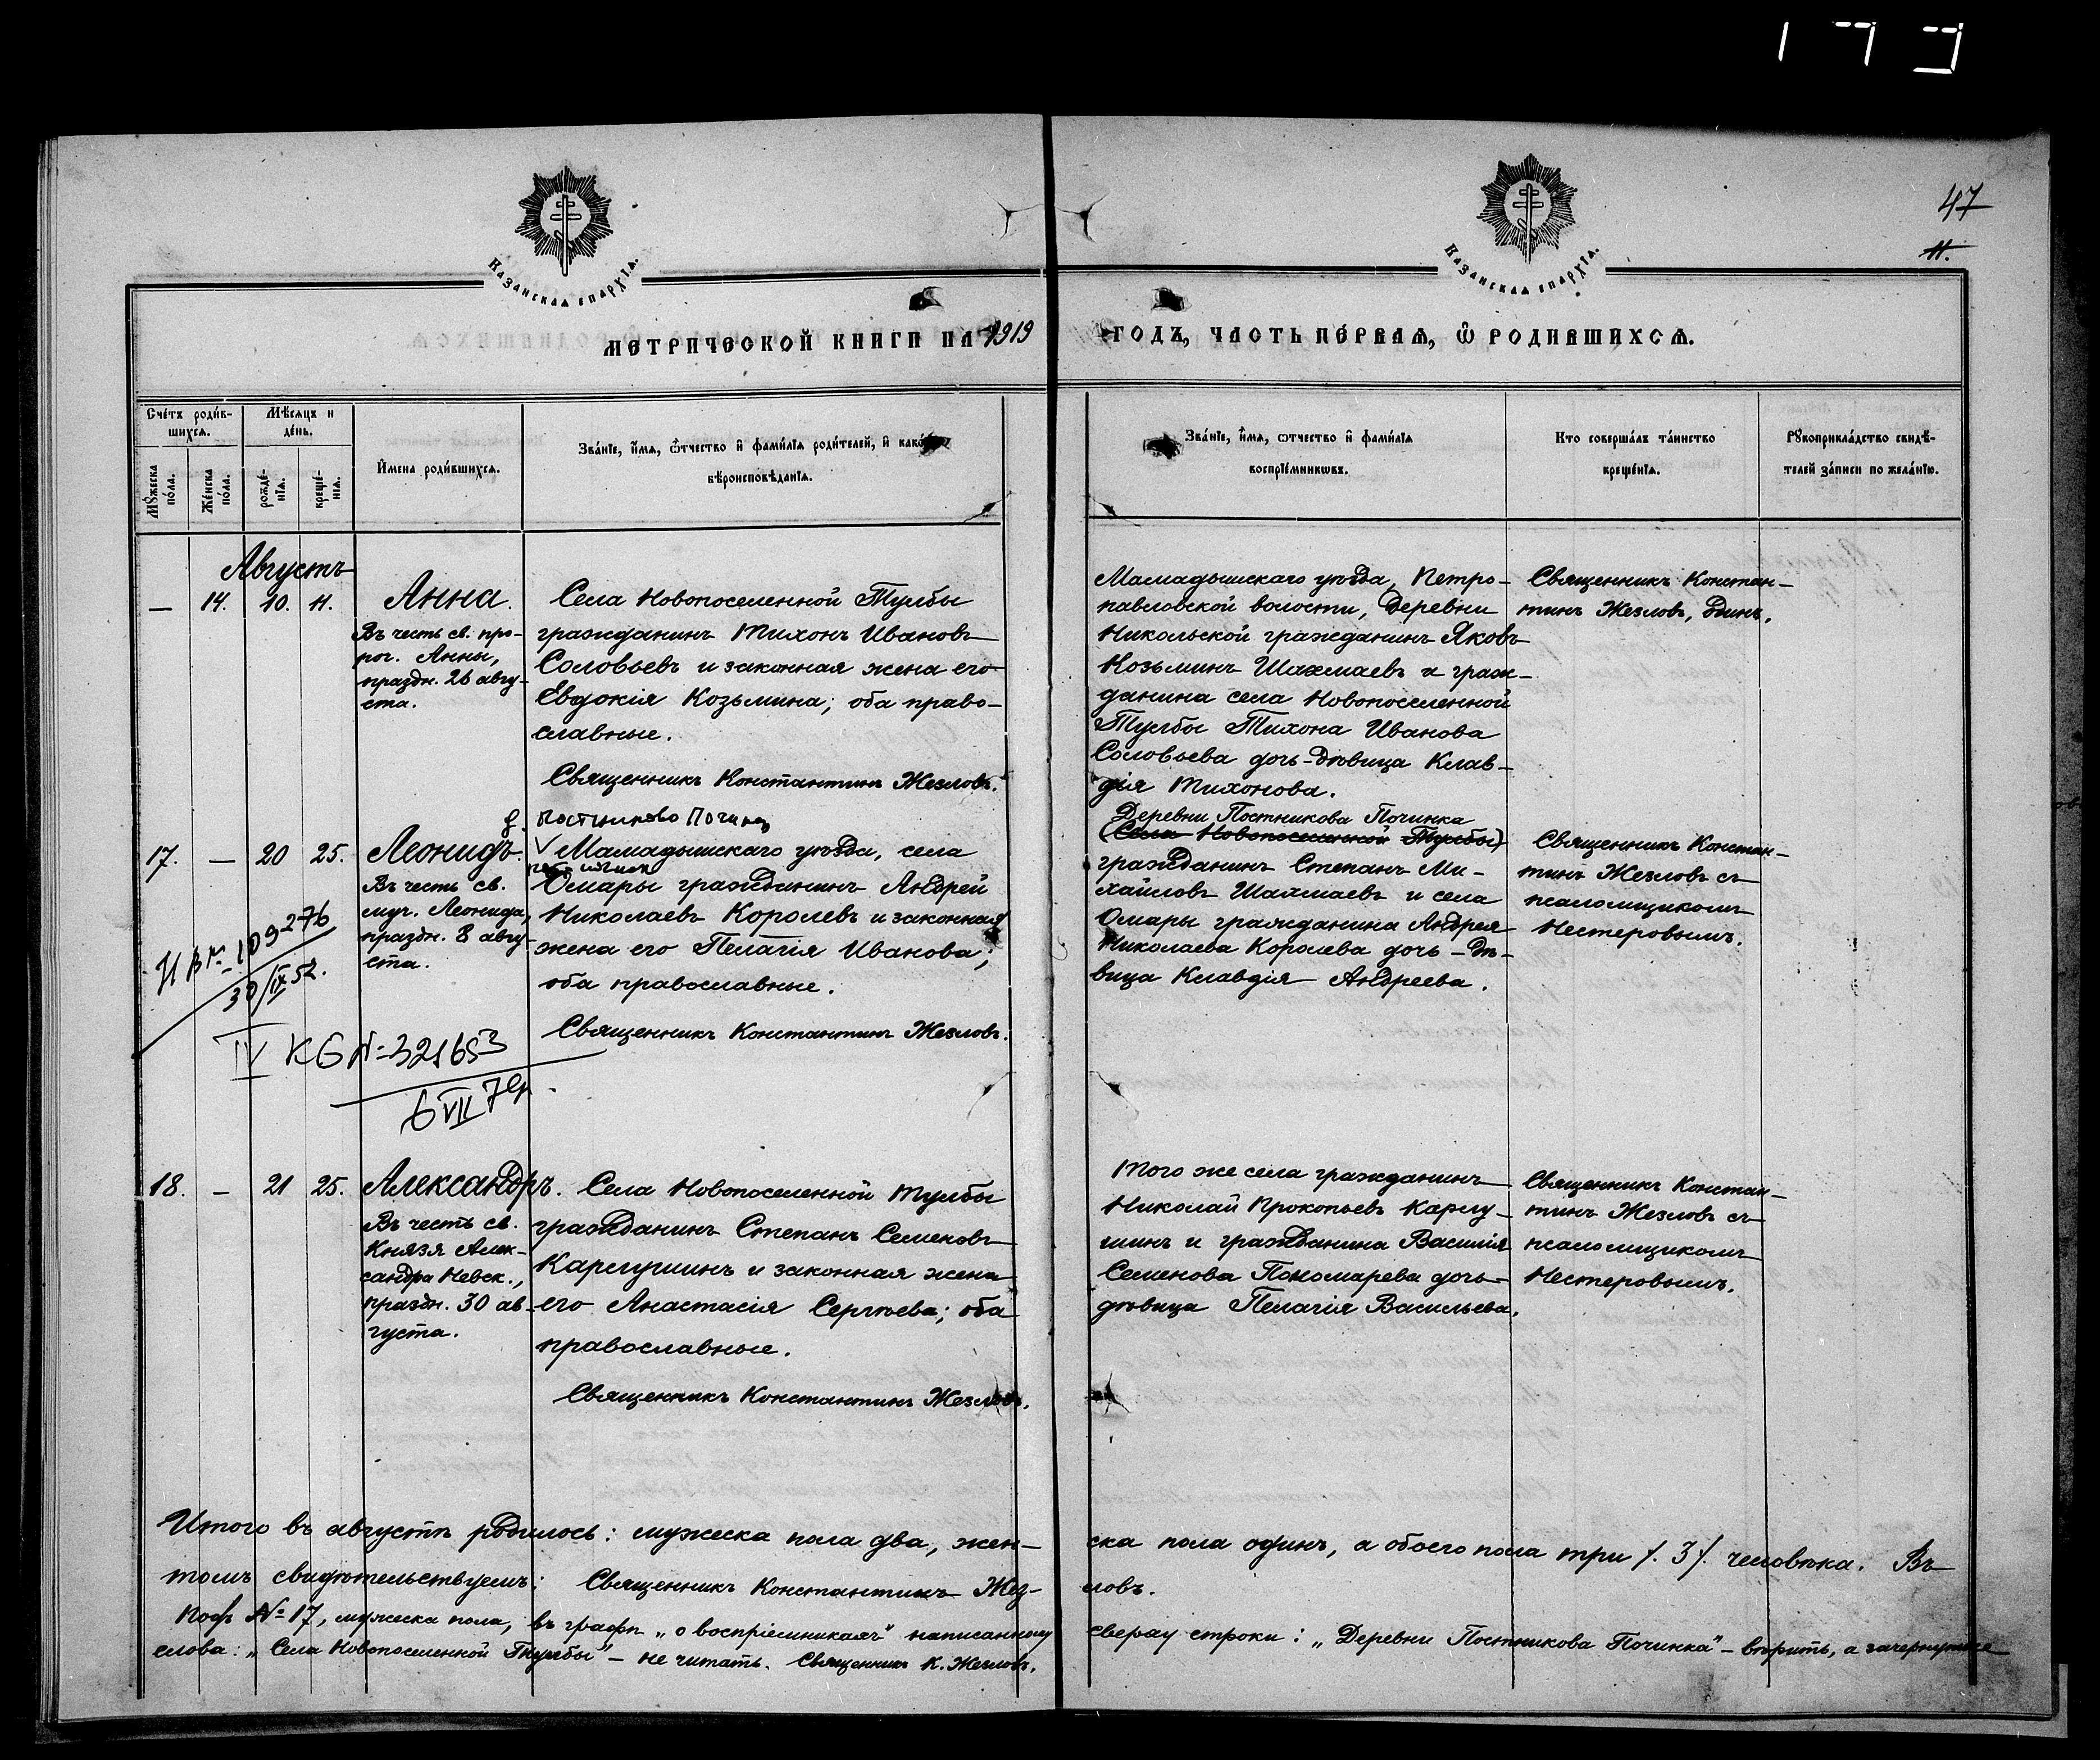 47
11.
КАЗАНСКАЯ ЕПАРХІЯ.
КАЗАНСКАЯ ЕПАРХІЯ.
МЕТРИЧЕСКОЙ КНИГИ НА 1919
ГОДЪ, ЧАСТЬ ПЕРВАЯ, Ѽ РОДИВШИХСЯ.
Счетъ родив-
шихся.
Мѣсяцъ и
день.
Мꙋжеска пола.
Женска пола.
рожде-
нія.
креще-
нія.
Имена родившихся.
Званіе, имя, ѿчество и фамилія родителей, и какого
вѣроисповѣданія.
Званіе, имя, ѿчество и фамилія
воспріемникѡвъ.
Кто совершалъ таинство
крещенія.
Рꙋкоприкладство свидѣ-
телей записи по желанію.
Августъ
— 14. 10. 11.
Анна.
Въ честь св. про-
рог. Анны,
праздн. 26 авгу-
ста.
Села Новопоселенной Тулбы
гражданинъ Тихонъ Ивановъ
Соловьевъ и законная жена его
Евдокія Козьмина; оба право-
славные.
Священникъ Константинъ Жезловъ.
Мамадышскаго уѣзда, Петро-
павловской волости, деревни
Никольской гражданинъ Яковъ
Козьминъ Шахмаевъ и граж-
данина села Новопоселенной
Тулбы Тихона Иванова
Соловьева дочь-дѣвица Клав-
дія Тихонова.
Священникъ Констан-
тинъ Жезловъ, одинъ.
17. — 20 25.
Леонидъ.
Въ честь св.
муч. Леонида,
праздн. 8 авгу-
ста.
д. Постниково Починок
Мамадышскаго уѣзда, села
Омары гражданинъ Андрей
Николаевъ Королевъ и законная
жена его Пелагія Иванова;
оба православные.
Священникъ Константинъ Жезловъ.
Деревни Постникова Починка
(Села Новопоселенной Тулбы)
гражданинъ Степанъ Ми-
хайловъ Шахмаевъ и села
Омары гражданина Андрея
Николаева Королева дочь-дѣ-
вица Клавдія Андреева.
Священникъ Констан-
тинъ Жезловъ съ
псаломщикомъ
Нестеровымъ.
№ 109276
30/IX 52.
IV КБ № 321653
6 VII
18. — 21 25.
Александръ.
Въ честь св.
Князя Алек-
сандра Невск.,
праздн. 30 ав-
густа.
Села Новопоселенной Тулбы
гражданинъ Степанъ Семеновъ
Карпушинъ и законная жена
его Анастасія Сергѣева; оба
православные.
Священникъ Константинъ Жезловъ.
Того же села гражданинъ
Николай Прокопьевъ Карпу-
шинъ и гражданина Василія
Семенова Пономарева дочь-
дѣвица Пелагія Васильева.
Священникъ Констан-
тинъ Жезловъ съ
псаломщикомъ
Нестеровымъ.
Итого въ августѣ родилось: мужеска пола два, жен-
ска пола одинъ, а обоего пола три /. 3 /. человѣка. Въ
томъ свидѣтельствуемъ: Священникъ Константинъ Жез-
ловъ.
Подъ № 17, мужеска пола, въ графѣ „о воспріемникахъ" написанному
сверху строки: „Деревни Постникова Починка" – вѣрить, а зачеркнутые
слова: „Села Новопоселенной Тулбы" – не читать. Священникъ К. Жезловъ.